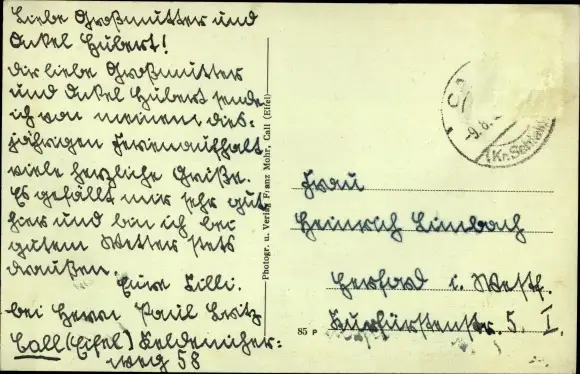 Liebe Großmutter und
Onkel Hubert!
Dir liebe Großmutter
und Onkel Hubert sende
ich von meinem dies-
jährigen Ferienaufhalt
viele herzliche Grüße.
Es gefällt mir sehr gut
hier und bin ich bei
gutem Wetter stets
draußen.
Eure Lilli.
bei Herrn Paul
Call (Eifel) Keldenicher-
weg 58
Photogr. u. Verlag Franz Mohr, Call (Eifel)
85 P
-9.8.
(Kr. Schleiden
Frau
Heinrich Limbach
Herford i. Westf.
Kurfürstenstr. 5. I.